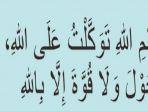 مِ اللهِ تَوَكَّلْتُ عَلَى اللهِ،
حَوْلَ وَلَا قُوَّةَ إِلَّا بِاللهِ